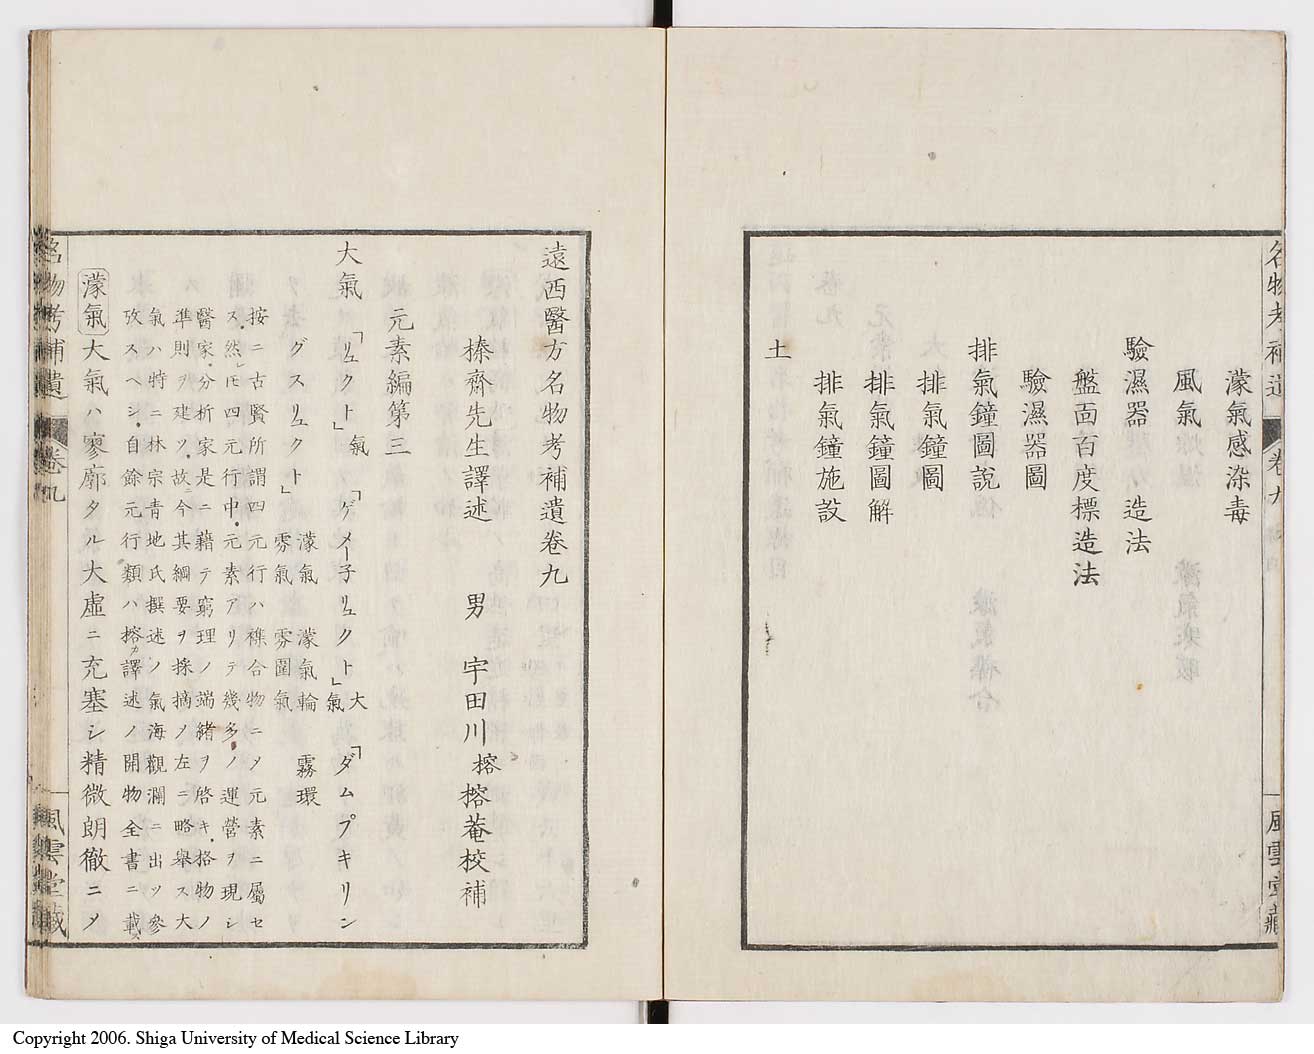 名物考補遺 卷九 風雲堂藏
濛氣感染毒
風氣
驗濕器 造法
盤面百度標造法
驗濕器圖
排氣鐘圖說
排氣鐘圖
排氣鐘圖解
排氣鐘施設
土
遠西醫方名物考補遺卷九
榛齋先生譯述 男 宇田川 榕 榕菴校補
元素編第三
大氣 「リュクト」氣 「ゲメー子リュクト」大氣 「ダムプキリン
グスリュクト」 濛氣 濛氣輪 霧環
雰氣 雰圍氣
按ニ古賢所謂四元行ハ襍合物ニ〆元素ニ屬セ
ス.然𪜈四元行中.元素アリテ幾多ノ運營ヲ現シ
醫家.分析家是ニ藉テ窮理ノ端緒ヲ啓キ.格物ノ
準則ヲ建ツ.故ニ今其綱要ヲ採摘〆左ニ略舉ス大
氣ハ特ニ林宗青地氏撰述ノ氣海觀瀾ニ出ツ參
攷スヘシ.自餘元行類ハ榕カ譯述ノ開物全書ニ載
濛氣 大氣ハ寥廓タル大虛ニ充塞シ精微朗徹ニ〆
名物考補遺 卷九 風雲堂藏
Copyright 2006. Shiga University of Medical Science Library